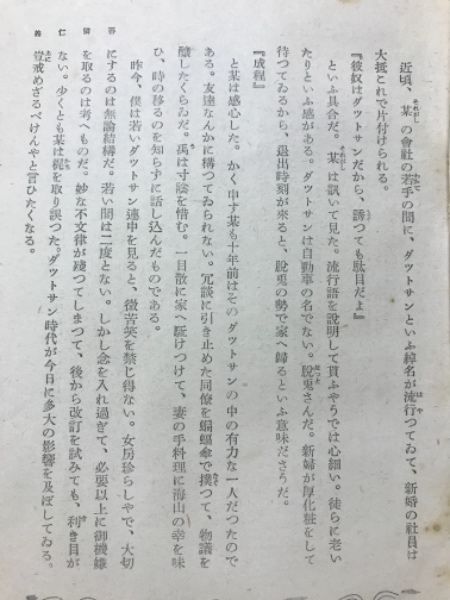 近頃、某の會社の若手の間に、ダツトサンといふ綽名が流行つてゐて、新婚の社員は
大抵これで片付けられる。
『彼奴はダツトサンだから、誘つても駄目だよ』
といふ具合だ。某は訊いて見た。流行語を說明して貰ふやうでは心細い。徒らに老い
たりといふ感がある。ダツトサンは自動車の名でない。脫兎さんだ。新婦が厚化粧をして
待つてゐるから、退出時刻が來ると、脫兎の勢で家へ歸るといふ意味ださうだ。
『成程』
と某は感心した。かく申す某も十年前はそのダツトサンの中の有力な一人だつたので
ある。友達なんかに構つてゐられない。冗談に引き止めた同僚を蝙蝠傘で撲つて、物議を
釀したくらゐだ。禹は寸陰を惜む。一目散に家へ駈けつけて、妻の手料理に海山の幸を味
ひ、時の移るのを知らずに話し込んだものである。
昨今、僕は若いダツトサン連中を見ると、微苦笑を禁じ得ない。女房珍らしやで、大切
にするのは無論結構だ。若い間は二度とない。しかし念を入れ過ぎて、必要以上に御機嫌
を取るのは考へものだ。妙な不文律が殘つてしまつて、後から改訂を試みても、利き目が
ない。少くとも某は楫を取り誤つた。ダツトサン時代が今日に多大の影響を及ぼしてゐる。
豈戒めざるべけんやと言ひたくなる。